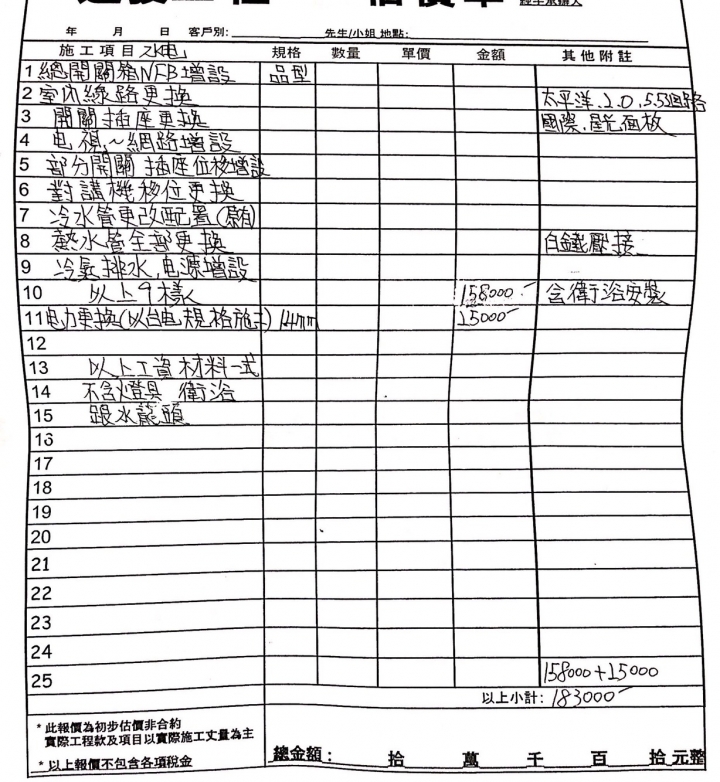 工程 估價單
年 月 日 客戶別: 先生/小姐 地點:
施工項目 水电 規格 數量 單價 金額 其他附註
1 總開關箱NFB增設 品型
2 室內線路更換 太平洋.2.0.5.5網路
3 開關插座更換 國際.星光面板
4 电視~網路增設
5 部分開關 插座位移增設
6 對講機移位更換
7 冷水管更改配置(原有)
8 熱水管全部更換 白鐵壓接
9 冷氣排水,电源增設
10 以上9樣 158000- 含衛浴安裝
11 电力更換(以台电規格施工) 14mm 15000-
12
13 以上工資材料一式
14 不含燈具 衛浴
15 跟水龍頭
16
17
18
19
20
21
22
23
24
25 158000+15000
以上小計: 183000-
* 此報價為初步估價非合約
實際工程款及項目以實際施工丈量為主
* 以上報價不包含各項稅金
總金額: 拾 萬 千 百 拾 元整